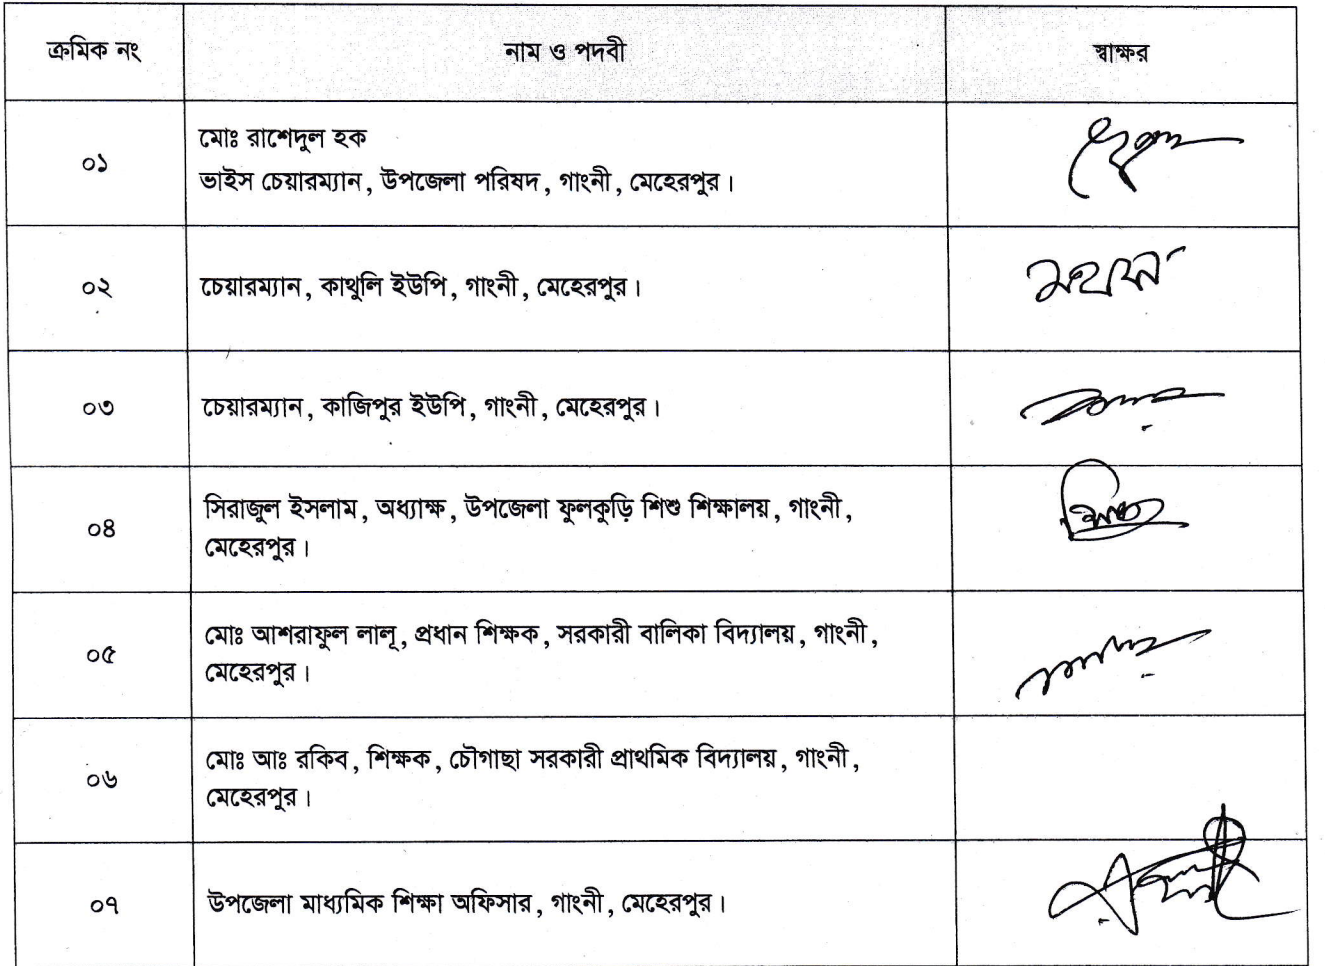 ক্রমিক নং নাম ও পদবী স্বাক্ষর
০১ মোঃ রাশেদুল হক
ভাইস চেয়ারম্যান, উপজেলা পরিষদ, গাংনী, মেহেরপুর।
০২ চেয়ারম্যান, কাথুলি ইউপি, গাংনী, মেহেরপুর।
০৩ চেয়ারম্যান, কাজিপুর ইউপি, গাংনী, মেহেরপুর।
০৪ সিরাজুল ইসলাম, অধ্যাক্ষ, উপজেলা ফুলকুড়ি শিশু শিক্ষালয়, গাংনী,
মেহেরপুর।
০৫ মোঃ আশরাফুল লালূ, প্রধান শিক্ষক, সরকারী বালিকা বিদ্যালয়, গাংনী,
মেহেরপুর।
০৬ মোঃ আঃ রকিব, শিক্ষক, চৌগাছা সরকারী প্রাথমিক বিদ্যালয়, গাংনী,
মেহেরপুর।
০৭ উপজেলা মাধ্যমিক শিক্ষা অফিসার, গাংনী, মেহেরপুর।